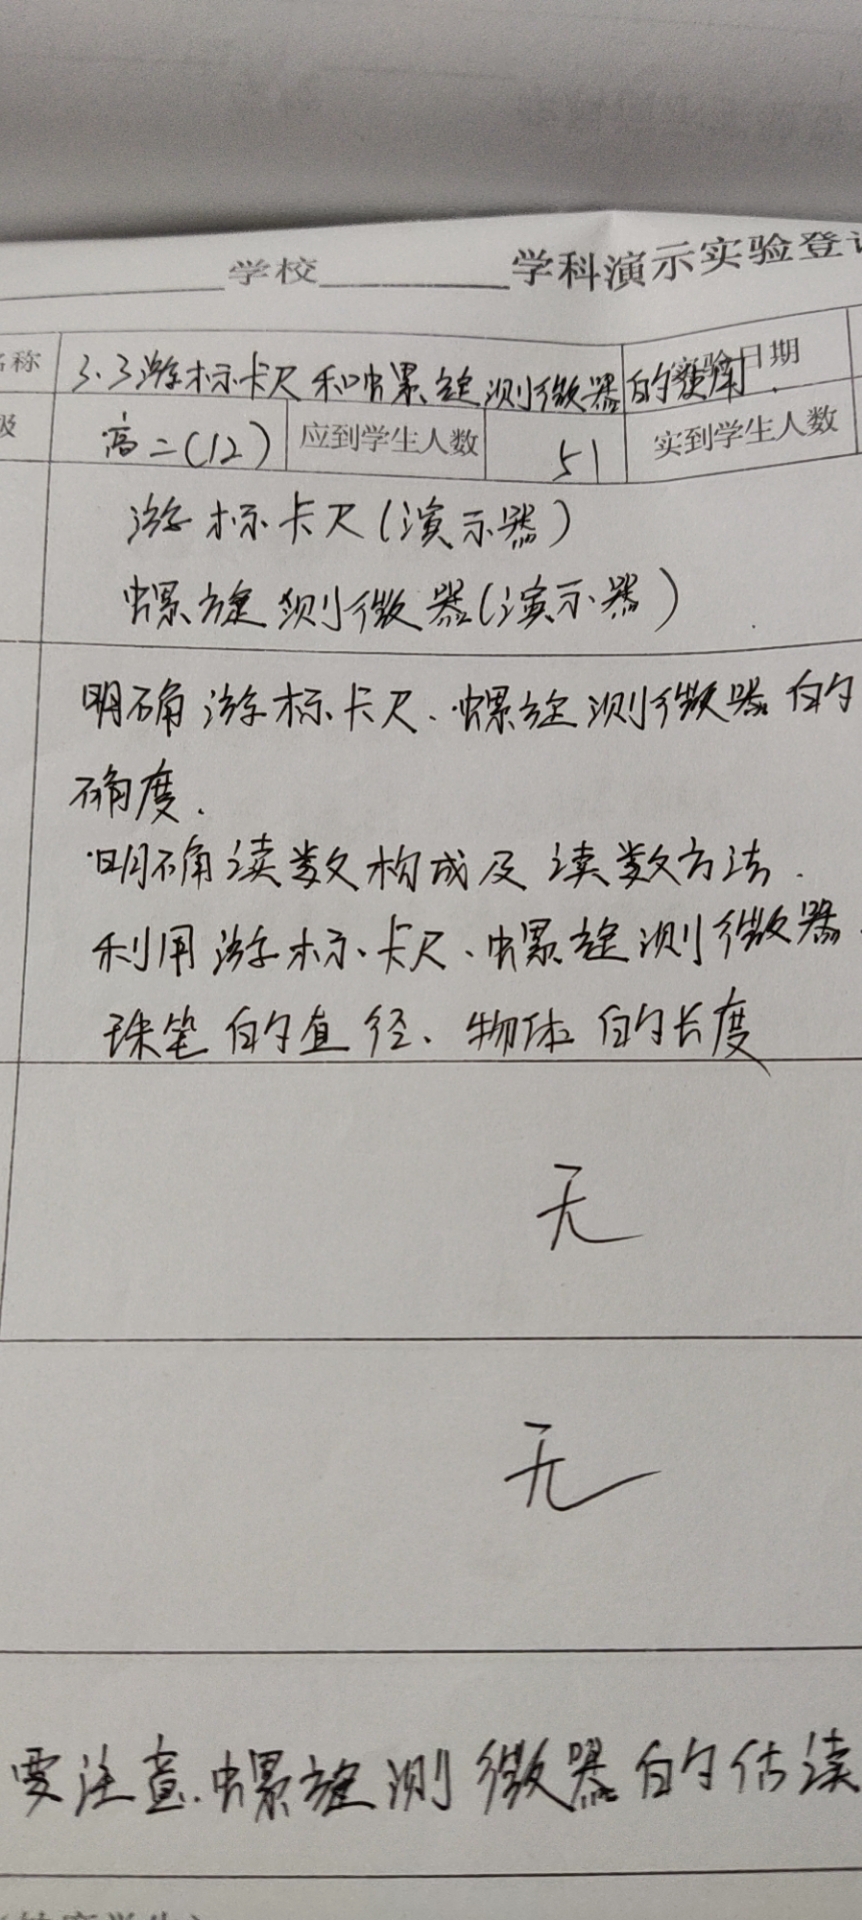 学校 学科演示实验登记
名称 3.3游标卡尺和螺旋测微器的使用. 实验日期
级 高二(12) 应到学生人数 51 实到学生人数
游标卡尺(演示器)
螺旋测微器(演示器)
明确游标卡尺、螺旋测微器的
确度.
明确读数构成及读数方法.
利用游标卡尺、螺旋测微器
珠笔的直径、物体的长度
无
无
要注意.螺旋测微器的估读